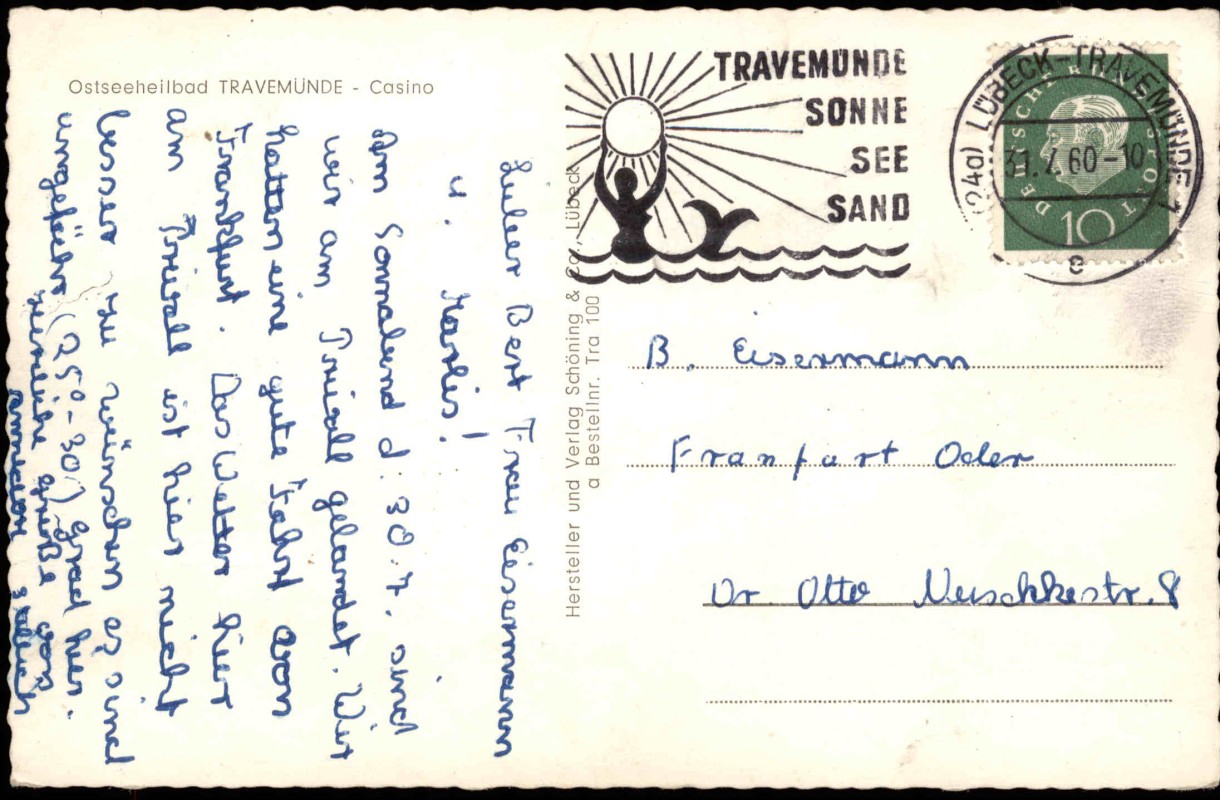 Ostseeheilbad TRAVEMÜNDE - Casino
Lieber Bert Frau Eisermann
u. Marlis!
Am Sonnabend d. 30.7. sind
wir am Priwall gelandet. Wir
hatten eine gute Fahrt von
Frankfurt. Das Wetter hier
am Priwall ist hier nicht
besser zu wünschen es sind
ungefähr (25°-30) grad hier.
Herzliche Grüße von
Hersteller und Verlag Schöning & Co., Lübeck
a Bestellnr. Tra 100
TRAVEMÜNDE
SONNE
SEE
SAND
(24a) LÜBECK-TRAVEMÜNDE 1
31.7.60-10
e
DEUTSCHE BUNDESPOST
10
B. Eisermann
Franfurt Oder
Dr Otto Nuschkestr. 8